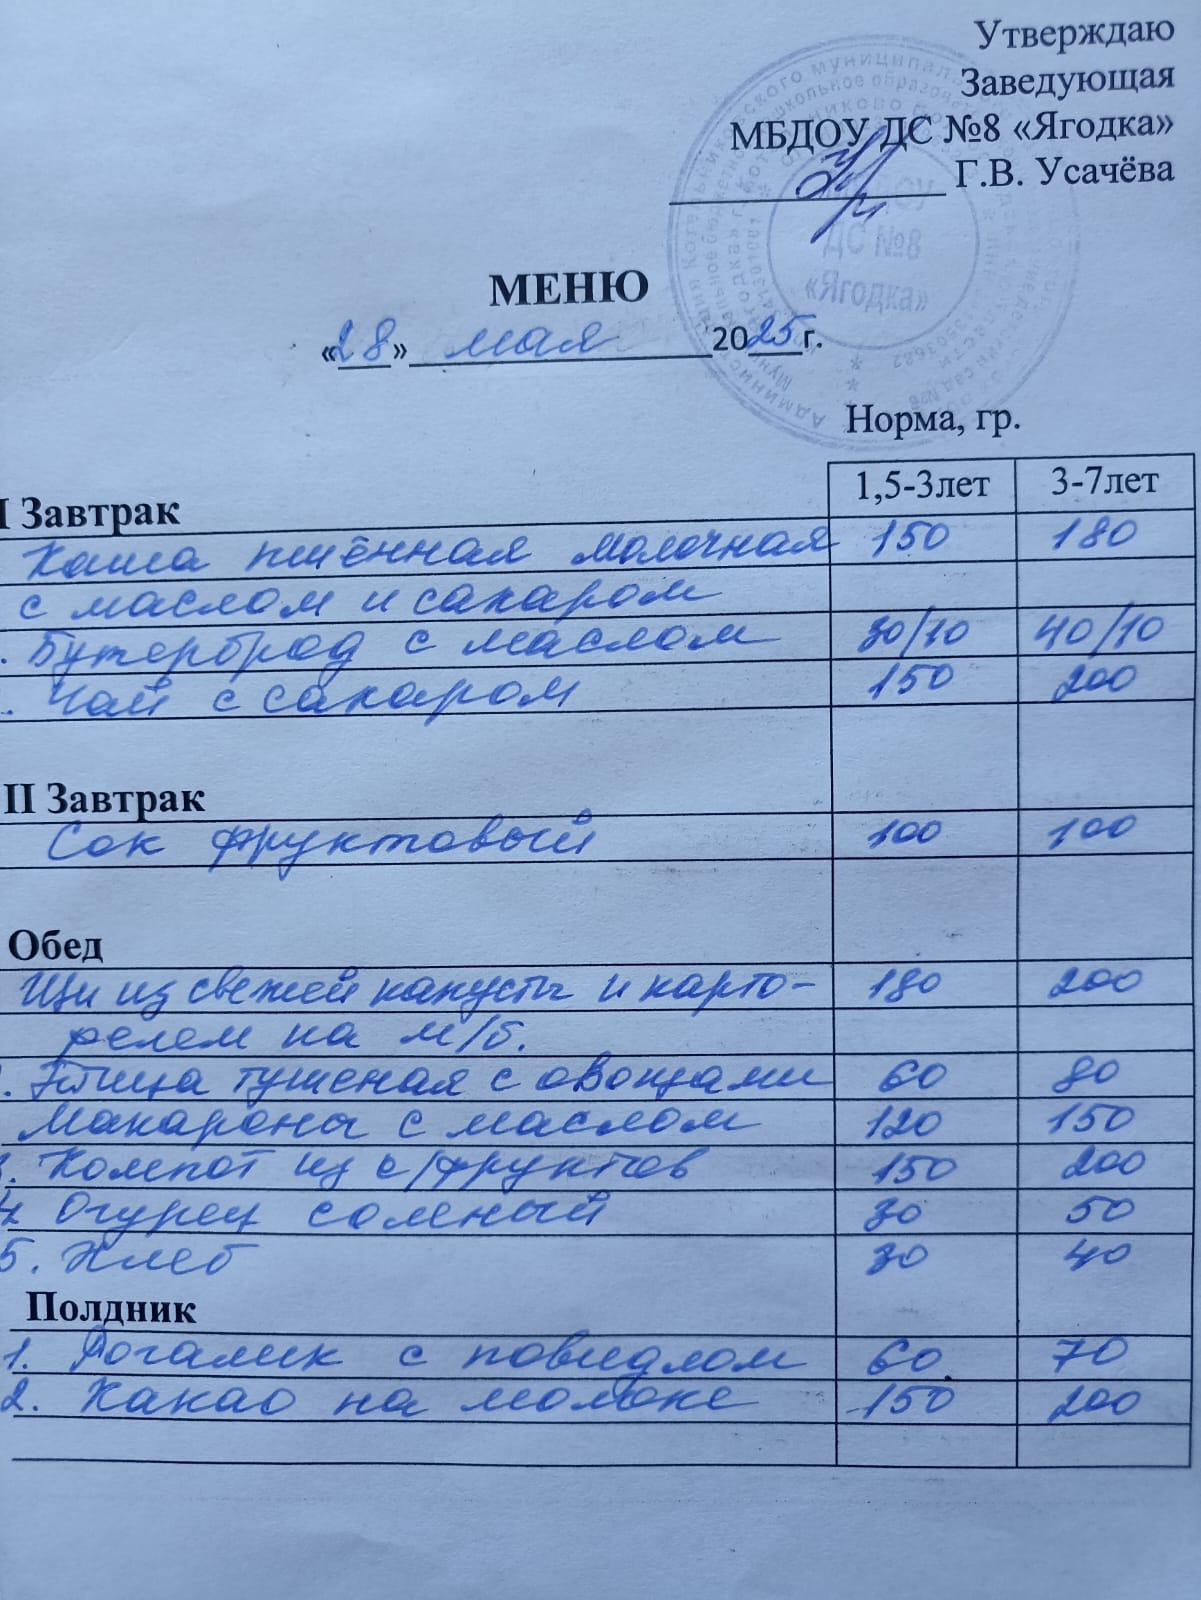 Утверждаю
Заведующая
МБДОУ ДС №8 «Ягодка»
Г.В. Усачёва
ДС №8
«Ягодка»
МЕНЮ
«28» мая 2025г.
Норма, гр.
I Завтрак 1,5-3лет 3-7лет
Каша пшённая молочная 150 180
с маслом и сахаром
. Бутерброд с маслом 30/10 40/10
. Чай с сахаром 150 200
II Завтрак
Сок фруктовый 100 100
Обед
Щи из свежей капусты и карто- 180 200
фелем на м/б.
. Птица тушеная с овощами 60 80
Макароны с маслом 120 150
3. Компот из с/фруктов 150 200
4. Огурец соленый 30 50
5. Хлеб 30 40
Полдник
1. Рогалик с повидлом 60 70
2. Какао на молоке 150 200